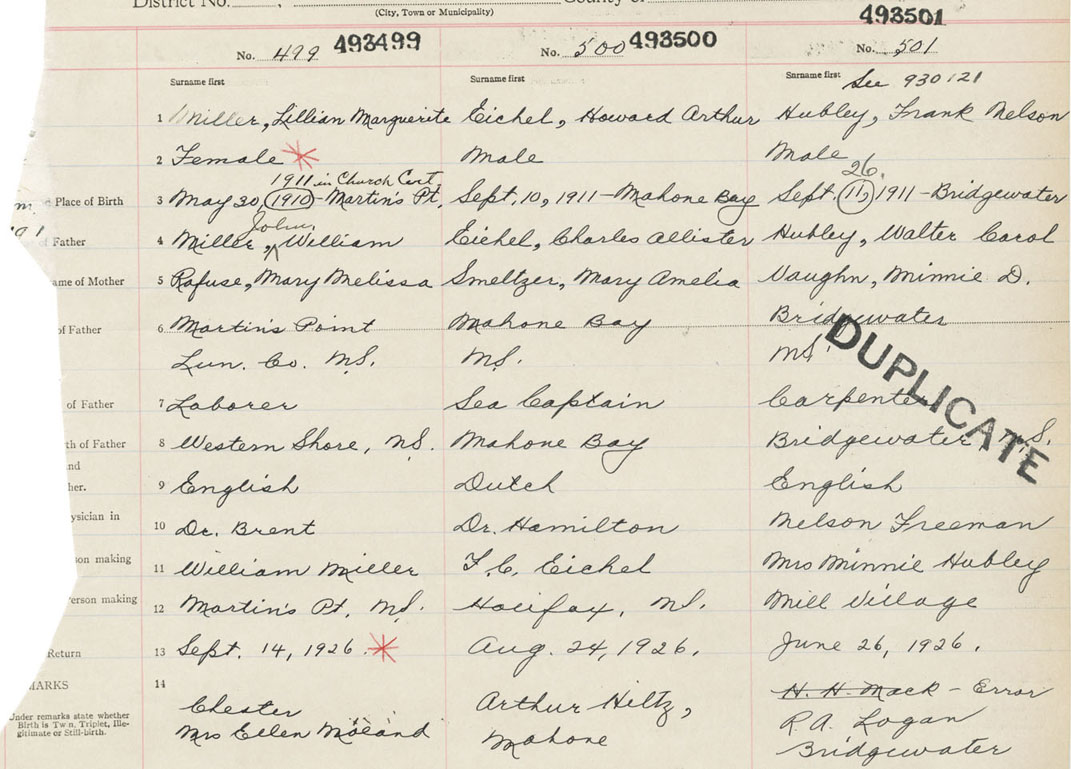 District No.          ,          County of
(City, Town or Municipality)
493501
No. 499 493499 No. 500 493500 No. 501
Surname first Surname first Surname first See 930121
1 Miller, Lillian Marguerite Eichel, Howard Arthur Hubley, Frank Nelson
2 Female Male Male
1911 in Church Cert. 26
Place of Birth 3 May 30, 1910 - Martin's Pt. Sept. 10, 1911 - Mahone Bay Sept. 11, 1911 - Bridgewater
John
Father 4 Miller, William Eichel, Charles Allister Hubley, Walter Carol
ame of Mother 5 Rafuse, Mary Melissa Smeltzer, Mary Amelia Vaughn, Minnie D.
of Father 6 Martin's Point Mahone Bay Bridgewater
Lun. Co. NS. NS. NS
DUPLICATE
of Father 7 Laborer Sea Captain Carpenter
th of Father 8 Western Shore, NS. Mahone Bay Bridgewater, N.S.
nd
her. 9 English Dutch English
ysician in 10 Dr. Brent Dr. Hamilton Nelson Freeman
son making 11 William Miller F. C. Eichel Mrs Minnie Hubley
erson making 12 Martin's Pt. NS. Halifax, NS. Mill Village
Return 13 Sept. 14, 1926. Aug. 24, 1926. June 26, 1926.
MARKS 14 H. H. Mack - Error
Chester Arthur Hiltz, R.A. Logan
Under remarks state whether
Birth is Twin, Triplet, Ille-
gitimate or Still-birth.
Mrs Ellen Mahone Bridgewater